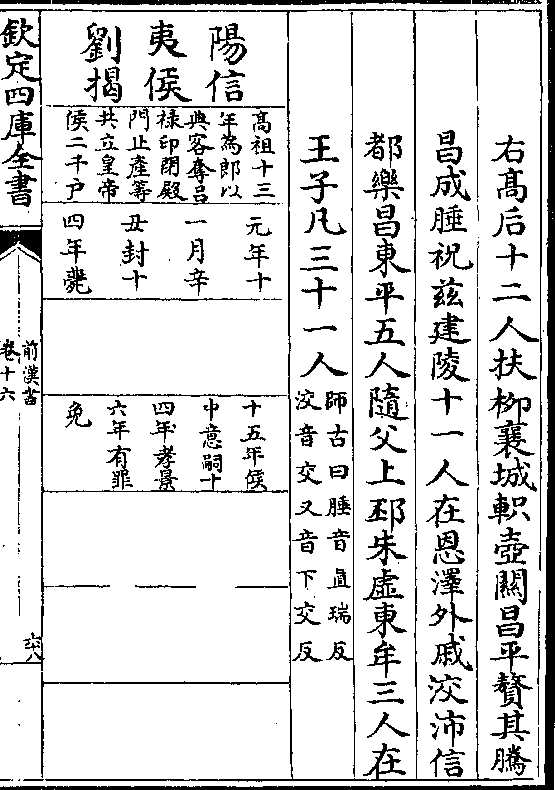 右髙后十二人扶栁襄城軹壺關昌平贅其騰
昌成腄祝兹建陵十一人在恩澤外戚洨沛信
都樂昌東平五人隨父上邳朱虚東牟三人在
王子凡三十一人
師古曰腄音直瑞反
洨音交又音下交反
陽信
夷侯
劉揭
髙祖十三
年為郎以
典客奪吕
禄印閉殿
門止產等
共立皇帝
侯二千户
元年十
一月辛
丑封十
四年薨
十五年侯
中意嗣十
四年孝景
六年有罪
免
欽定四庫全書
前漢書
卷十六